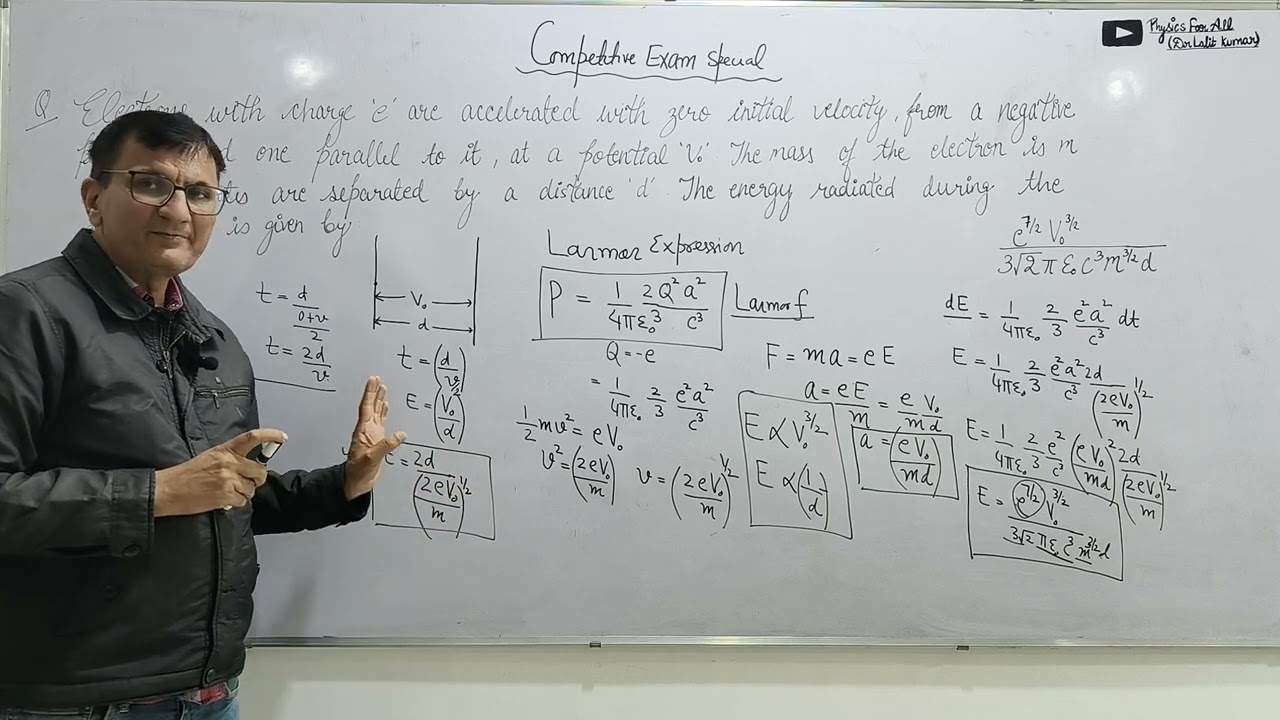 Competitive Exam Special
Physics For All
(Dr Lalit Kumar)
Q Electrons with charge 'e' are accelerated with zero initial velocity, from a negative
one parallel to it, at a potential 'V₀' The mass of the electron is m
are separated by a distance 'd'. The energy radiated during the
is given by
e^7/2 V₀^3/2 / 3√2 π ε₀ c³ m^3/2 d
t = d / (0+v)/2
t = 2d / v
V₀
d
t = (d / v)
E = (V₀ / d)
= 2d / (2eV₀ / m)^1/2
Larmor Expression
P = 1/4πε₀ 2/3 Q²a²/c³
Larmor f
Q = -e
= 1/4πε₀ 2/3 e²a²/c³
1/2 mv² = eV₀
v² = (2eV₀ / m)
v = (2eV₀ / m)^1/2
F = ma = eE
a = eE/m = e/m V₀/d
a = (eV₀ / md)
E ∝ V₀^3/2
E ∝ (1/d)
dE = 1/4πε₀ 2/3 e²a²/c³ dt
E = 1/4πε₀ 2/3 e²a²/c³ 2d / (2eV₀/m)^1/2
E = 1/4πε₀ 2/3 e²/c³ (eV₀/md)² 2d / (2eV₀/m)^1/2
E = e^7/2 V₀^3/2 / 3√2 π ε₀ c³ m^3/2 d